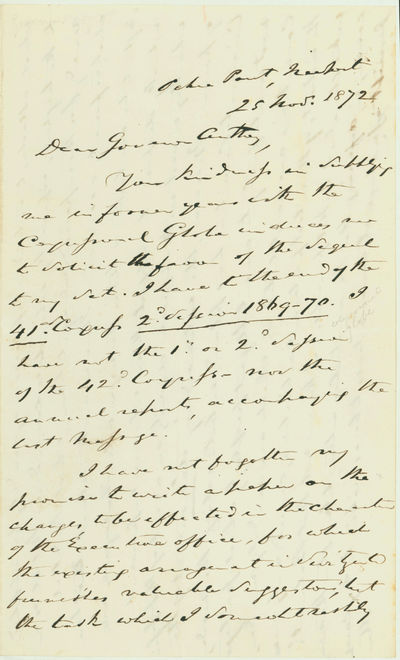 Ochre Point, Newport
25 Nov. 1872
Dear Governor Anthony,
Your kindness in supplying
me in former years with the
Congressional Globe induces me
to solicit the favor of the sequel
to my set. I have to the end of the
41st Congress 2d Session 1869-70. I
have not the 1st or 2d Session
of the 42d Congress - nor the
annual reports, accompanying the
last Message.
I have not forgotten my
promise to write a paper on the
changes to be effected in the Character
of the Executive office, for which
the existing arrangement in Switzerland
furnishes valuable suggestions, but
the task which I somewhat rashly